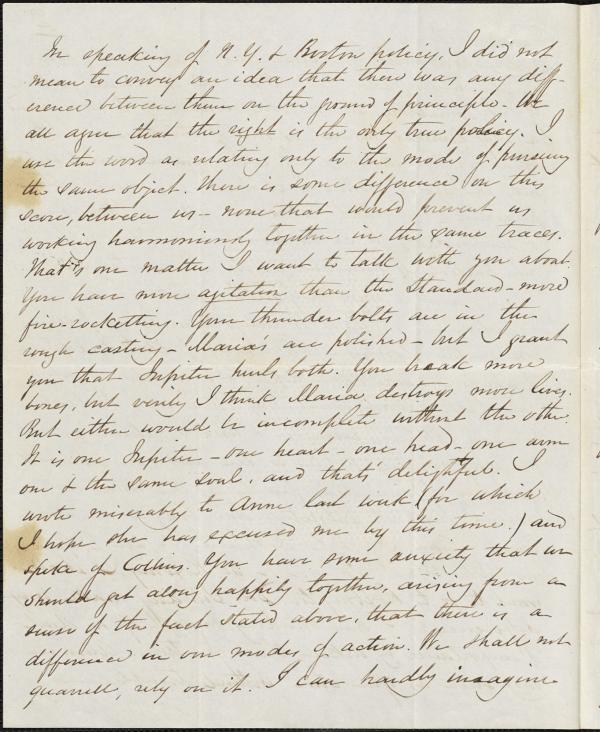 In speaking of N.Y. & Boston policy, I did not
mean to convey an idea that there was any diff-
erence between them on the ground of principle - We
all agree that the right is the only true policy. I
use the word as relating only to the mode of pursuing
the same object. There is some difference on this
score, between us - none that would prevent us
working harmoniously together in the same traces.
That's one matter I want to talk with you about.
You have more agitation than the Standard - more
fire-rocketting. Your thunder bolts are in the
rough casting - Maria's are polished - but I grant
you that Jupiter hurls both. You break more
bones, but verily I think Maria destroys more lives.
But either would be incomplete without the other.
It is one Jupiter - one heart - one head - one arm
one & the same soul, and thats' delightful. I
wrote miserably to Anne last week (for which
I hope she has excused me by this time.) and
spoke of Collins. You have some anxiety that we
should get along happily together, arising from a
sense of the fact stated above, that there is a
difference in our modes of action. We shall not
quarrell, rely on it. I can hardly imagine